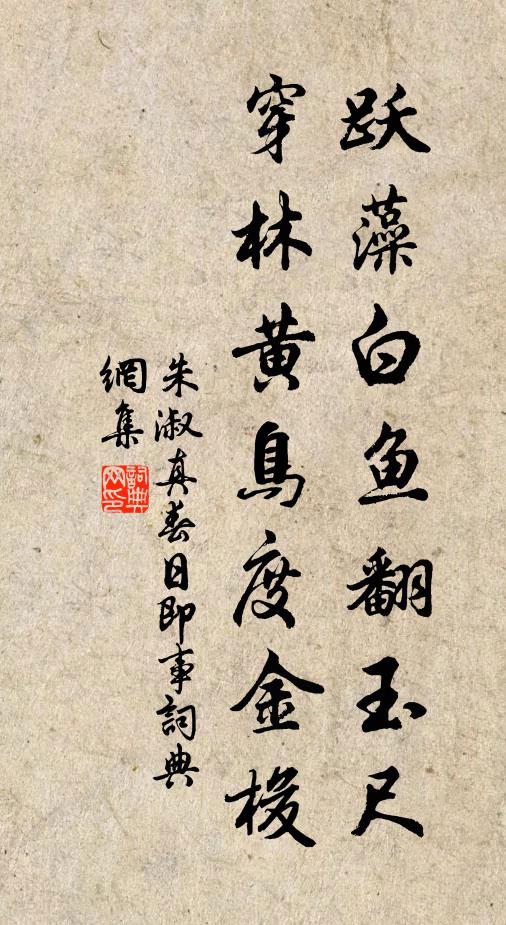 跃藻白鱼翻玉尺
穿林黄鸟度金梭
朱淑真春日即事詞典
網集
詞典
网印